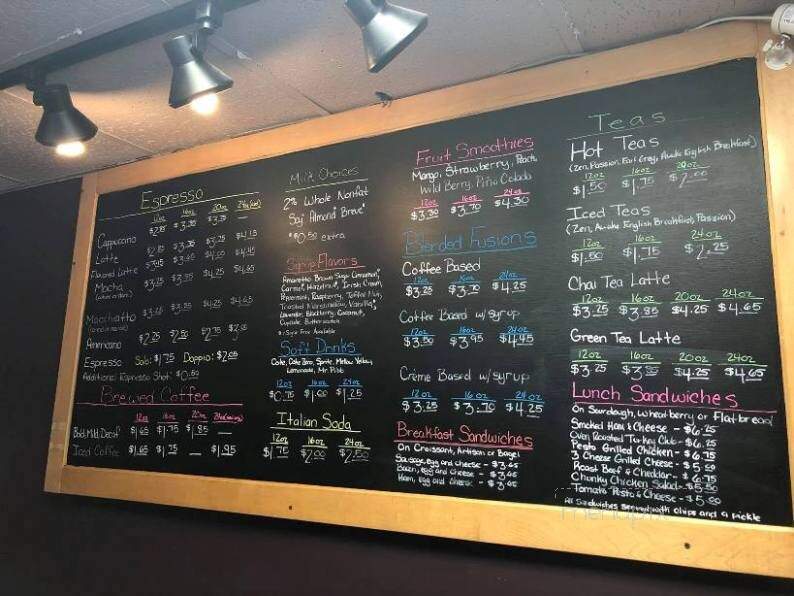 Espresso
12oz 16oz 20oz 24oz
Cappuccino
Latte
Flavored Latte
Mocha
Macchiatto
Americano $2.25 $2.50 $2.75
Espresso Solo: $1.75 Doppio:
Additional Espresso Shot: $0.50
Brewed Coffee
12oz 16oz 20oz 24oz
Bold, Mild, Decaf $1.65 $1.75 $1.85 —
Iced Coffee $1.65 $1.75 — $1.95
Milk Choices
2% Whole Nonfat
Soy* Almond* Breve*
*$0.50 extra
Syrup Flavors
Amaretto, Brown Sugar Cinnamon,
Caramel, Hazelnut, Irish Cream,
Peppermint, Raspberry, Toffee Nut,
Toasted Marshmallow, Vanilla,
Lavender, Blackberry, Coconut,
Cupcake, Butterscotch
Sugar Free Available
Soft Drinks
Coke, Coke Zero, Sprite, Mellow Yellow,
Lemonade, Mr. Pibb
12oz 16oz 24oz
$0.75 $1.00 $1.25
Italian Soda
12oz 16oz 24oz
$1.70 $2.00 $2.50
Fruit Smoothies
Mango, Strawberry, Peach,
Wild Berry, Piña Colada
12oz 16oz 24oz
$3.30 $3.70 $4.30
Blended Fusions
Coffee Based
12oz 16oz 24oz
$3.25 $3.70 $4.25
Coffee Based w/syrup
12oz 16oz 24oz
$3.50 $3.95 $4.45
Crème Based w/syrup
12oz 16oz 24oz
$3.25 $3.70 $4.25
Breakfast Sandwiches
On Croissant, Artisan or Bagel
Sausage, Egg and Cheese - $3.65
Bacon, egg and cheese - $3.65
Ham, egg and cheese - $3.65
Teas
Hot Teas
(Zen, Passion, Earl Grey, Awake English Breakfast)
12oz 16oz 20oz
$1.50 $1.75 $2.00
Iced Teas
(Zen, Awake English Breakfast, Passion)
12oz 16oz 24oz
$1.50 $1.75 $2.25
Chai Tea Latte
12oz 16oz 20oz 24oz
$3.25 $3.85 $4.25 $4.65
Green Tea Latte
12oz 16oz 20oz 24oz
$3.25 $3.85 $4.25 $4.65
Lunch Sandwiches
On Sourdough, wheatberry or flatbread
Smoked Ham & Cheese - $6.25
Oven Roasted Turkey Club - $6.25
Pesto Grilled Chicken - $6.75
3 Cheese Grilled Cheese - $5.50
Roast Beef & Cheddar - $6.75
Chunky Chicken Salad - $5.50
Tomato Pesto & Cheese - $5.50
All Sandwiches served with chips and a pickle